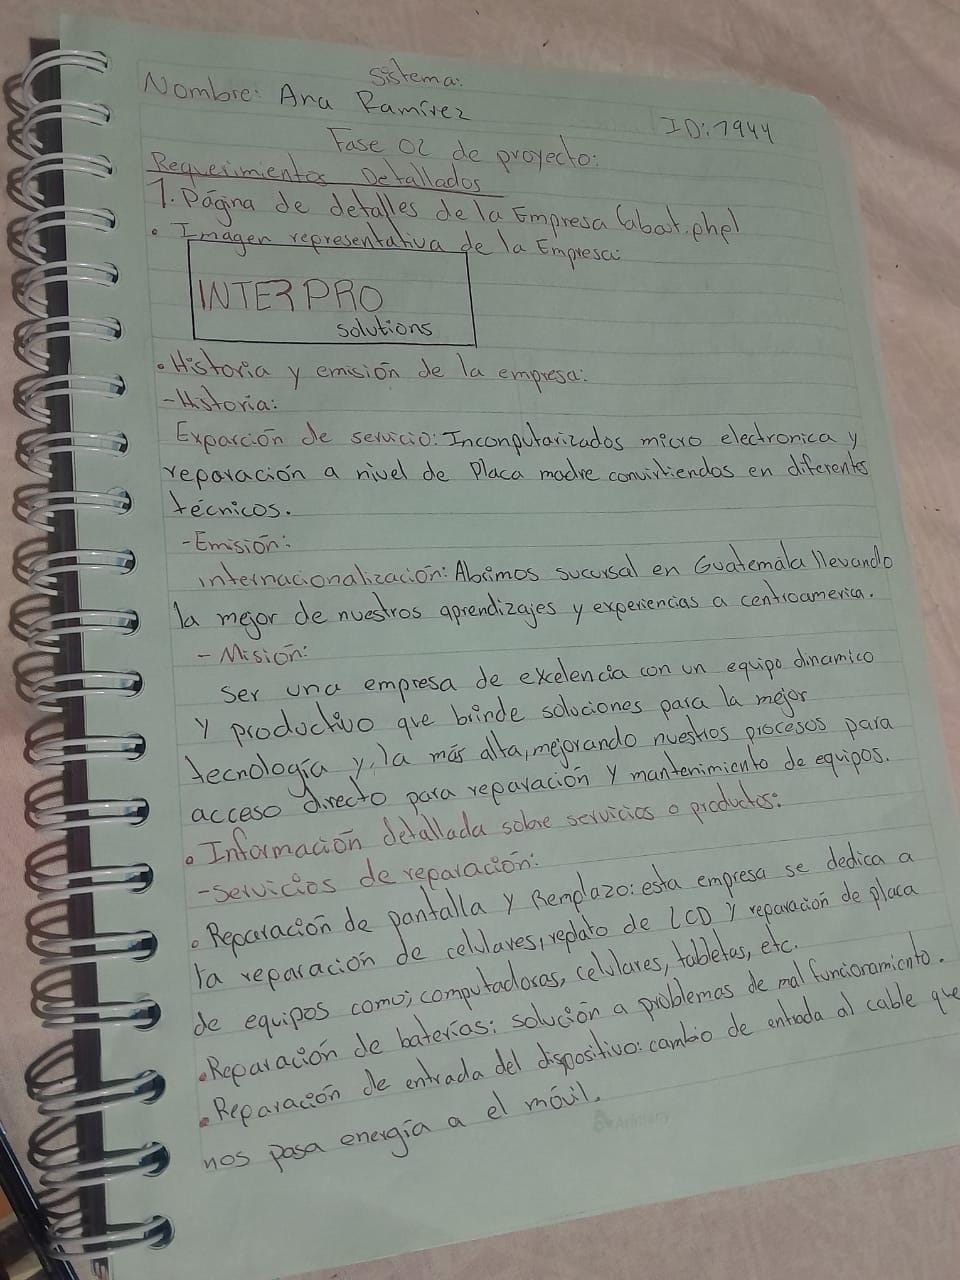 Sistema:
Nombre: Ana Ramírez
ID: 7944
Fase 02 de proyecto:
Requerimientos Detallados
1. Página de detalles de la Empresa (abat.php)
• Imagen representativa de la Empresa:
INTERPRO
solutions
• Historia y emisión de la empresa:
- Historia:
Exparción de servicio: Inconputarizados micro electronica y
reparación a nivel de Placa madre convirtiendos en diferentes
técnicos.
- Emisión:
internacionalización: Abrimos sucursal en Guatemala llevando
la mejor de nuestros aprendizajes y experiencias a centroamerica.
- Misión:
Ser una empresa de exelencia con un equipo dinamico
y productivo que brinde soluciones para la mejor
tecnología y, la más alta, mejorando nuestros procesos para
acceso directo para reparación y mantenimiento de equipos.
• Información detallada sobre servicios o productos:
- Servicios de reparación:
• Reparación de pantalla y Remplazo: esta empresa se dedica a
la reparación de celulares, repato de LCD y reparación de placa
de equipos como; computadoras, celulares, tabletas, etc.
• Reparación de baterías: solución a problemas de mal funcionamiento.
• Reparación de entrada del dispositivo: cambio de entrada al cable que
nos pasa energía a el móvil.